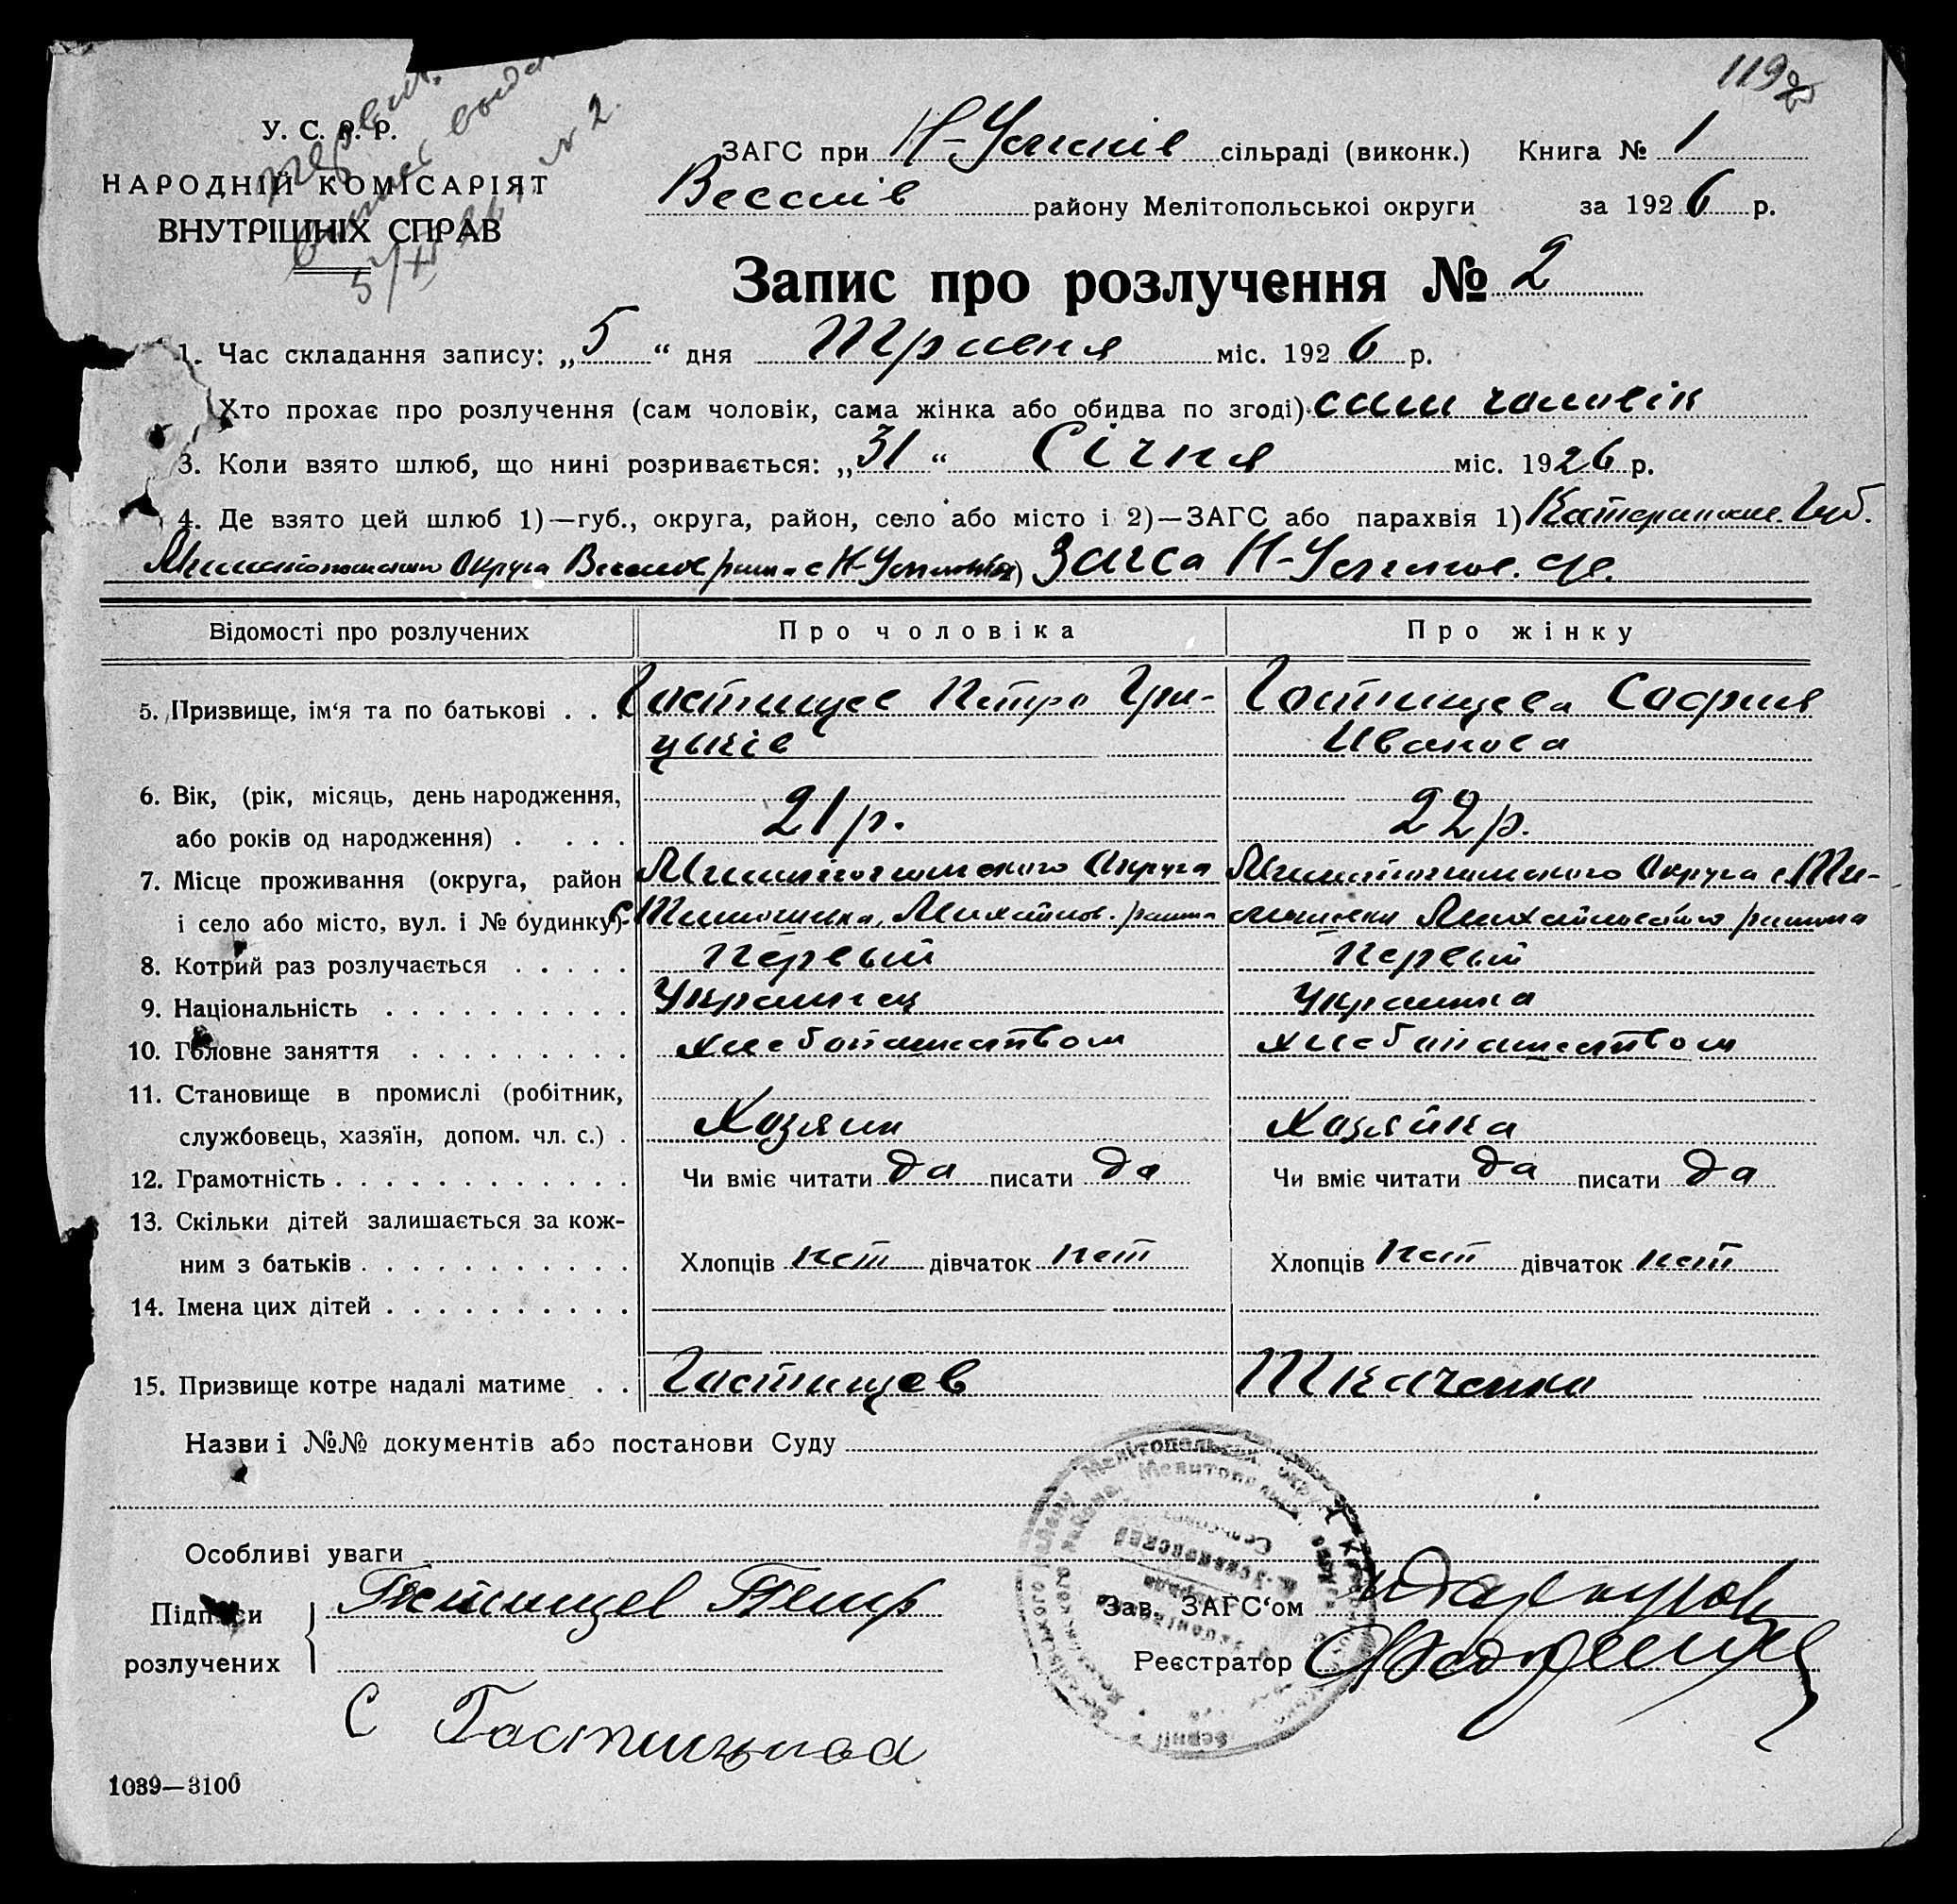 119
У. С. Р. Р.
НАРОДНІЙ КОМІСАРІЯТ
ВНУТРІШНІХ СПРАВ
№ 2.
ЗАГС при Н-Успенів сільраді (виконк.) Книга № 1
Веселів району Мелітопольскої округи за 1926 р.
Запис про розлучення № 2
1. Час складання запису: „5“ дня Травня міс. 1926 р.
Хто прохає про розлучення (сам чоловік, сама жінка або обидва по згоді) сам чоловік
3. Коли взято шлюб, що нині розривається: „31“ Січня міс. 1926 р.
4. Де взято цей шлюб 1)—губ., округа, район, село або місто і 2)—ЗАГС або парахвія 1) Катеринослав. Губ.
Округа Загса
Відомості про розлучених Про чоловіка Про жінку
5. Призвище, ім‘я та по батькові . . . Гостищев Петро Гри- Гостищева София
цьків Иванова
6. Вік, (рік, місяць, день народження,
або років од народження) . . . . 21 р. 22 р.
7. Місце проживання (округа, район Мелитопольского Округа Мелитопольского Округа с Ти-
і село або місто, вул. і № будинку)- с Тимошовка, Михайлов. района мошовки Михайловского района
8. Котрий раз розлучається . . . . . Первый Первый
9. Національність . . . . . . . . . . Украинец Украинка
10. Головне заняття . . . . . . . . . хлебопашеством хлебопашеством
11. Становище в промислі (робітник,
службовець, хазяїн, допом. чл. с.) . Хозяин Хозяйка
12. Грамотність . . . . . . . . . . . . Чи вміє читати да писати да Чи вміє читати да писати да
13. Скільки дітей залишається за кож-
ним з батьків . . . . . . . . . . . Хлопців нет дівчаток нет Хлопців нет дівчаток нет
14. Імена цих дітей . . . . . . . . . .
15. Призвище котре надалі матиме . . Гостищев Ткаченко
Назви і №№ документів або постанови Суду
Особливі уваги
Підписи Гостищев Петр Зав. ЗАГС‘ом
розлучених Реєстратор
С Гостищева
1039—3100